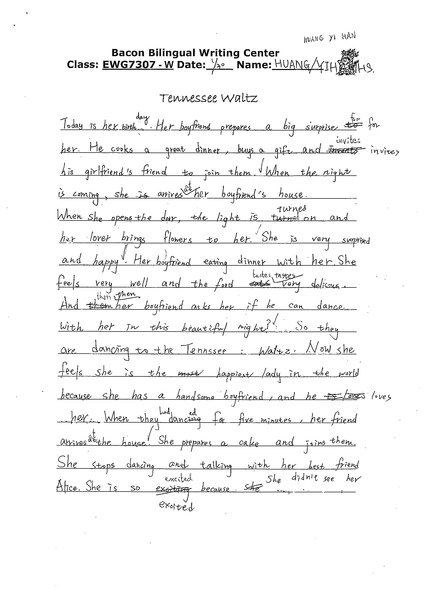 HUANG YI HAN
Bacon Bilingual Writing Center
Class: EWG7307 - W Date: 1/20 Name: HUANG/YIH HS.
Tennessee Waltz
day
Today is her birth . Her boyfriend prepares a big surprise to for for
her. He cooks a great dinner, buys a gift and invents invites invites
his girlfriend's friend to join them. When the night
is coming, she is arrives at her boyfriend's house.
When she opens the door, the light is turned turned on and
her lover brings flowers to her. She is very surprised
and happy. Her boyfriend eating dinner with her. She
feels very well and the food eats tastes very delicous.
And them then her boyfriend asks her if he can dance
with her in this beautiful night? So they
are dancing to the Tennssee : Waltz. Now she
feels she is the most happiest lady in the world
because she has a handsome boyfriend, and he is loves
her. When they had danced for five minutes, her friend
arrives at the house. She prepares a cake and joins them.
She stops dancing and talking with her best friend
Alice. She is so exciting excited because she She didn't see her
excited